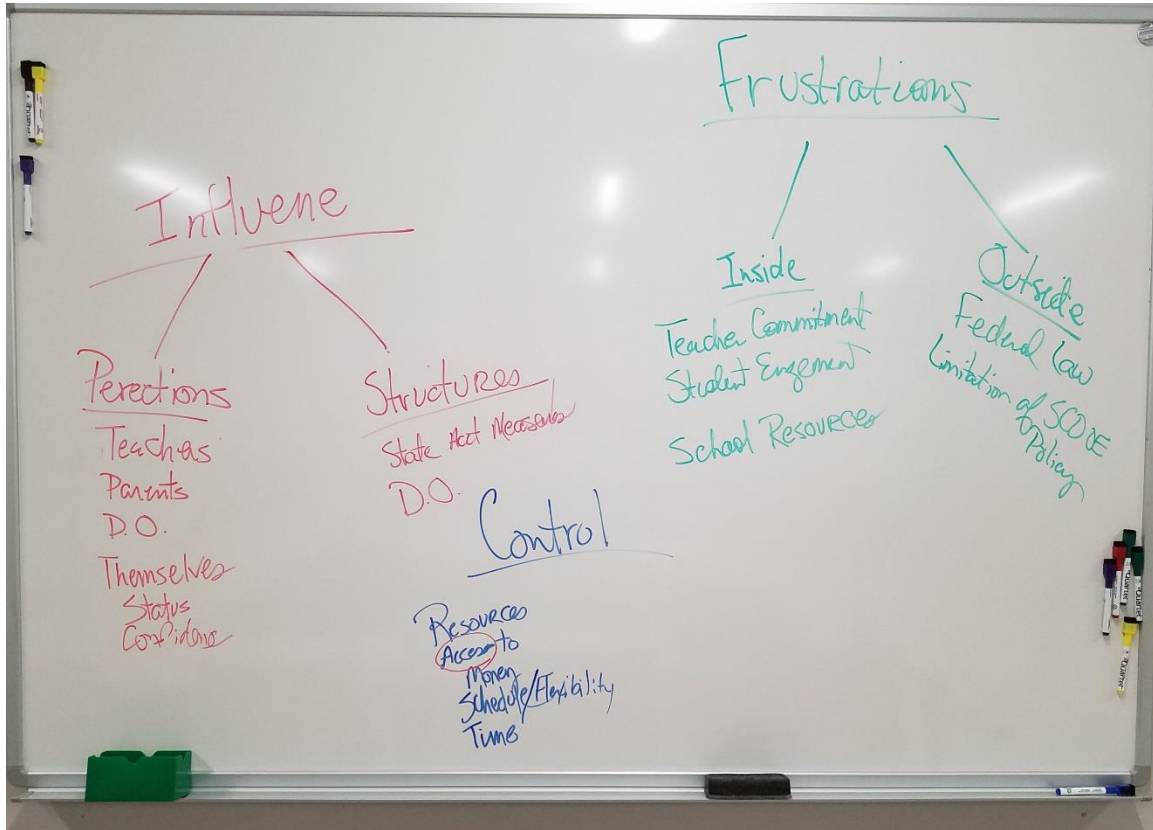 Influene
Perections
Teachers
Parents
D.O.
Themselves
Status
Confidence
Structures
State Acct Measures
D.O.
Control
Resources
Access to
Money
Schedule/Flexibility
Time
Frustrations
Inside
Teacher Commitment
Student Engement
School Resources
Outside
Federal Law
Limitation of SCDOE
Policy